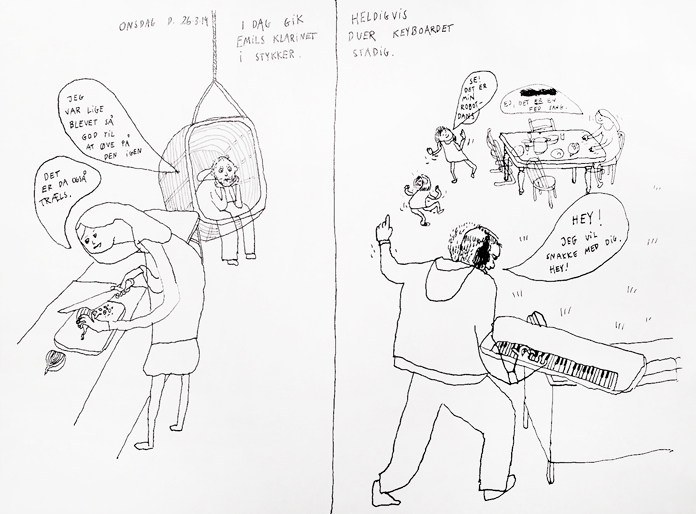 ONSDAG D. 26.3.14
I DAG GIK
EMILS KLARINET
I STYKKER.
JEG
VAR LIGE
BLEVET SÅ
GOD TIL
AT ØVE PÅ
DEN IGEN
DET
ER DA OGSÅ
TRÆLS.
HELDIGVIS
DUER KEYBOARDET
STADIG.
SE!
DET ER
MIN
ROBOT-
DANS
EJ, DET ER EN
FED SANG.
HEY!
JEG VIL
SNAKKE MED DIG.
HEY!